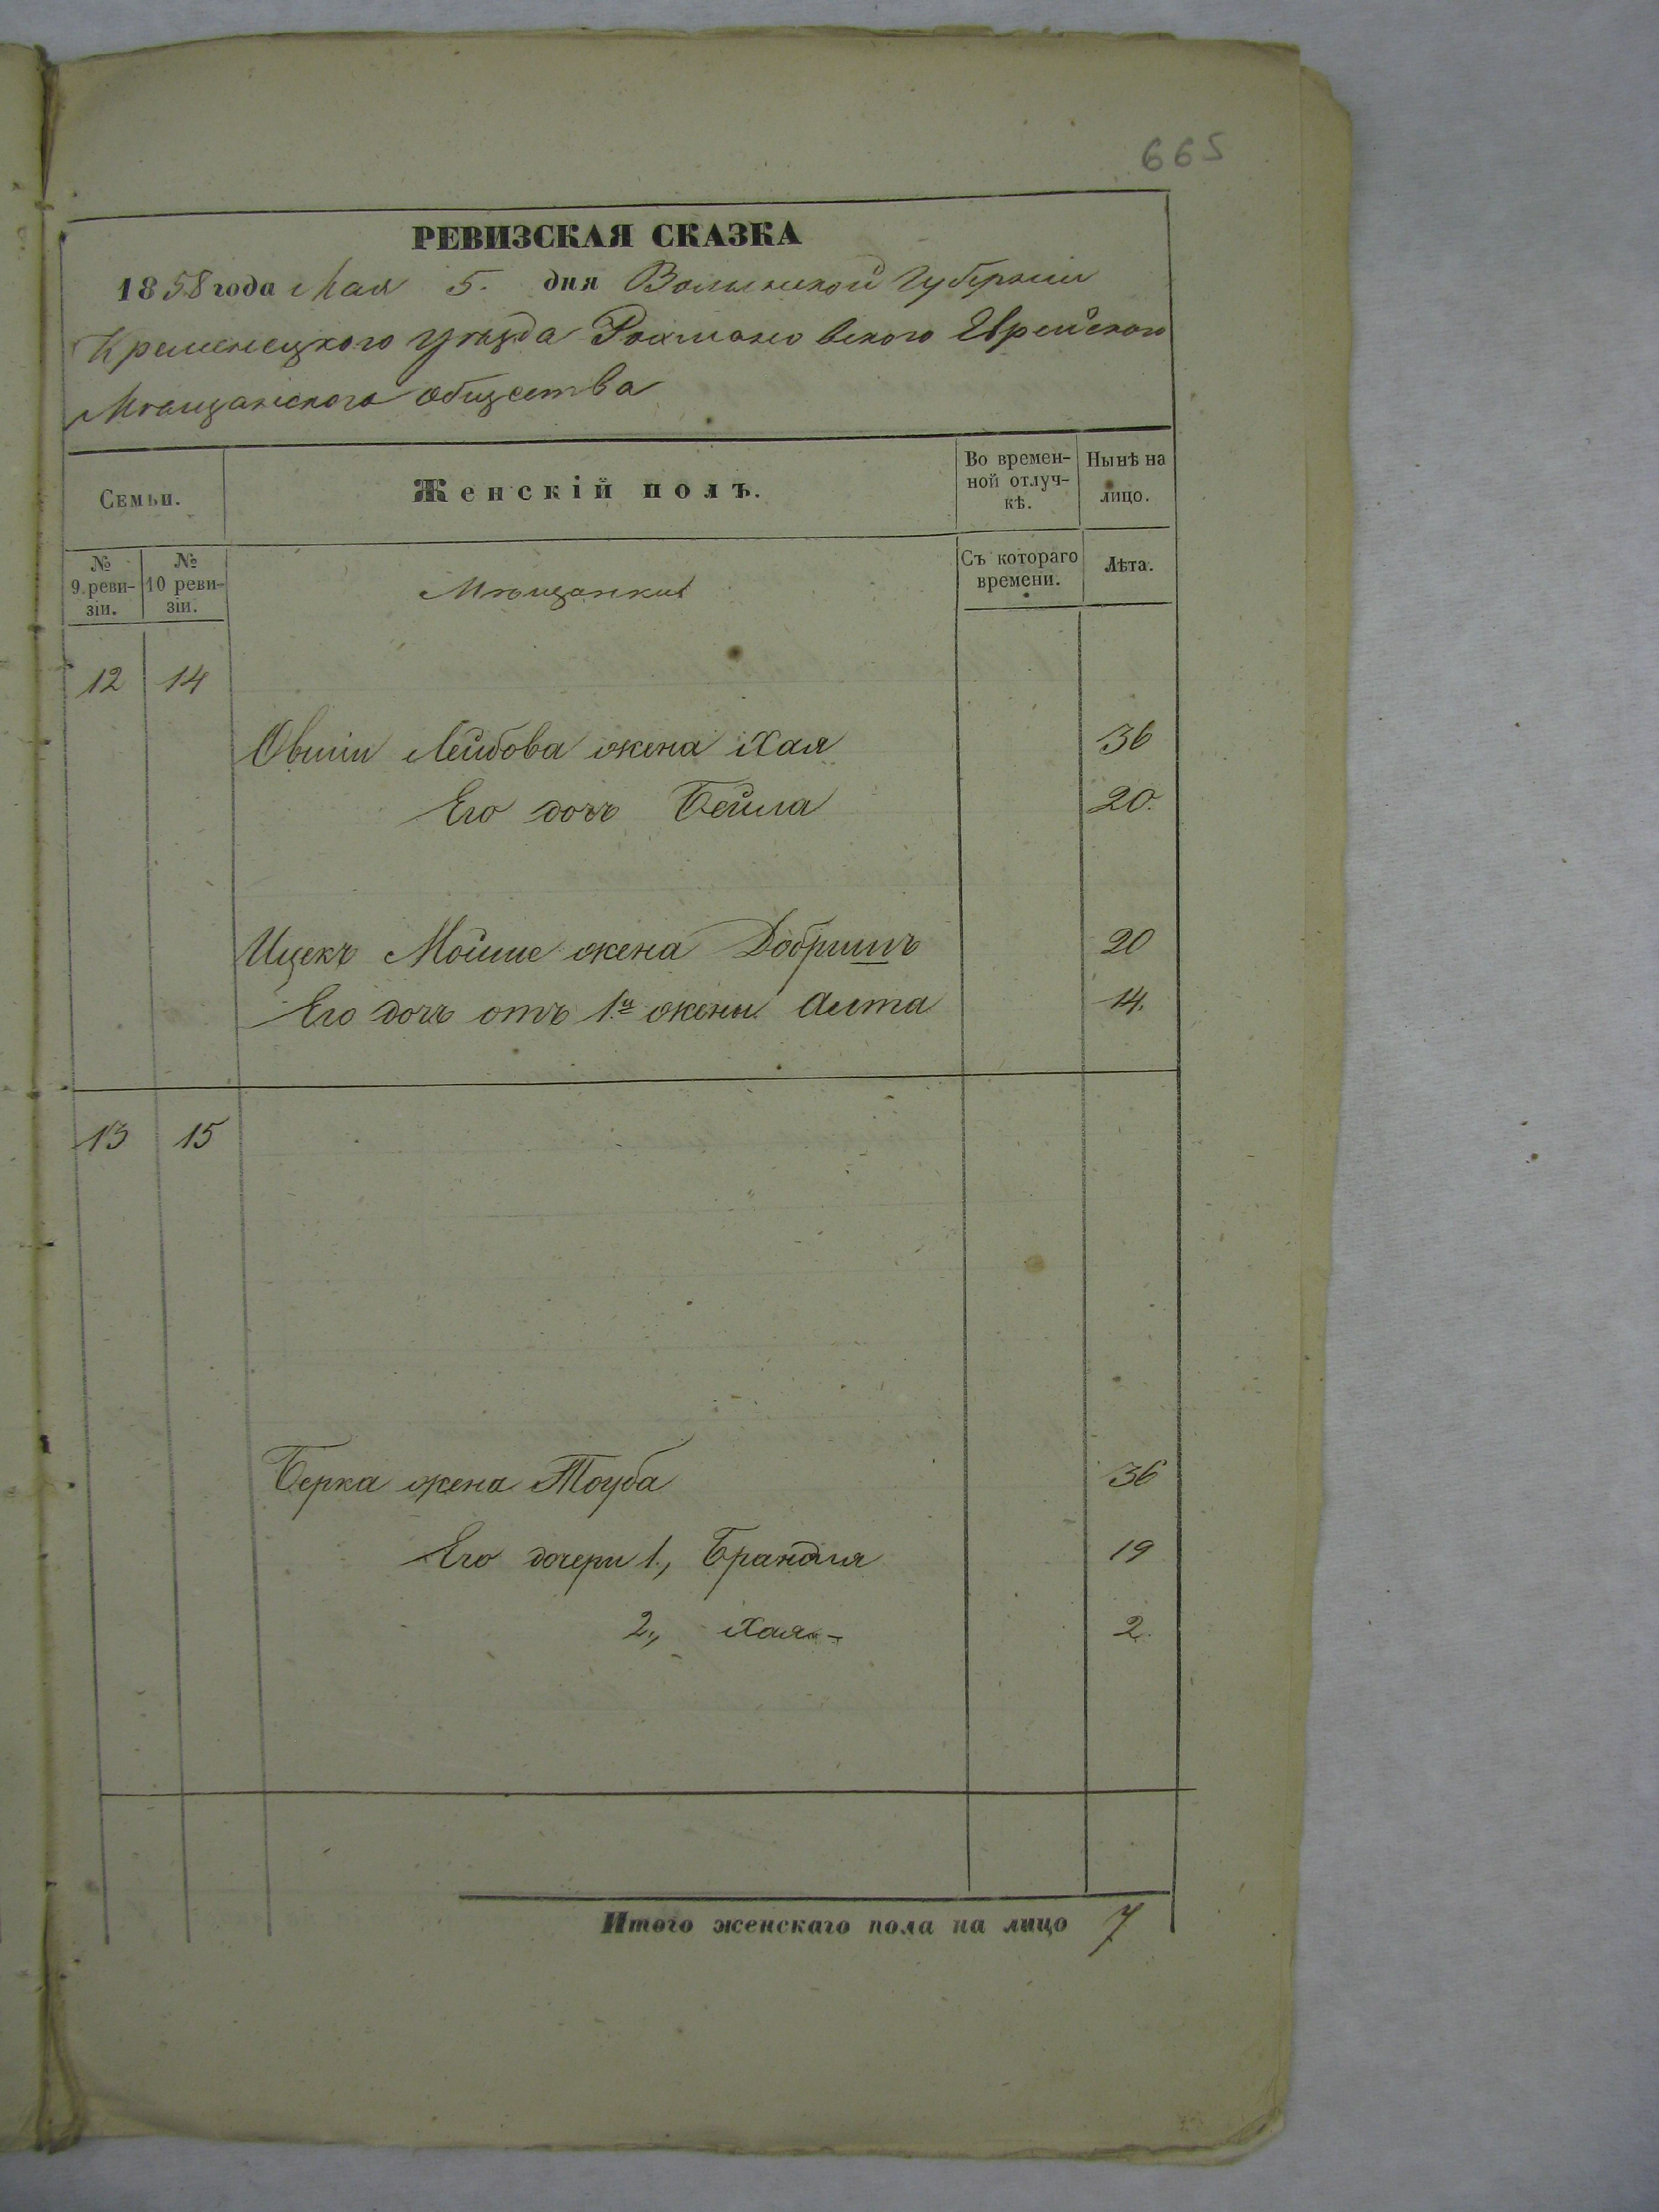 665
РЕВИЗСКАЯ СКАЗКА
1858 года Мая 5. дня Волынской Губернии
Кременецкого уѣзда Рахмановского Еврейского
Мѣщанского общества
Семьи.
Женскій полъ.
Во времен-
ной отлуч-
кѣ.
Нынѣ на
лицо.
№
9 реви-
зіи.
№
10 реви-
зіи.
Мѣщанки
Съ котораго
времени.
Лѣта.
12 14
Овшіи Лейбова жена Хая 36
Его дочь Бейла 20.
Ицекъ Мойше жена Добришъ 20
Его дочь отъ 1.й жены Алта 14.
13 15
Берка жена Тоуба 36
Его дочери 1., Брандля 19
2., Хая - 2.
Итого женскаго пола на лицо 7